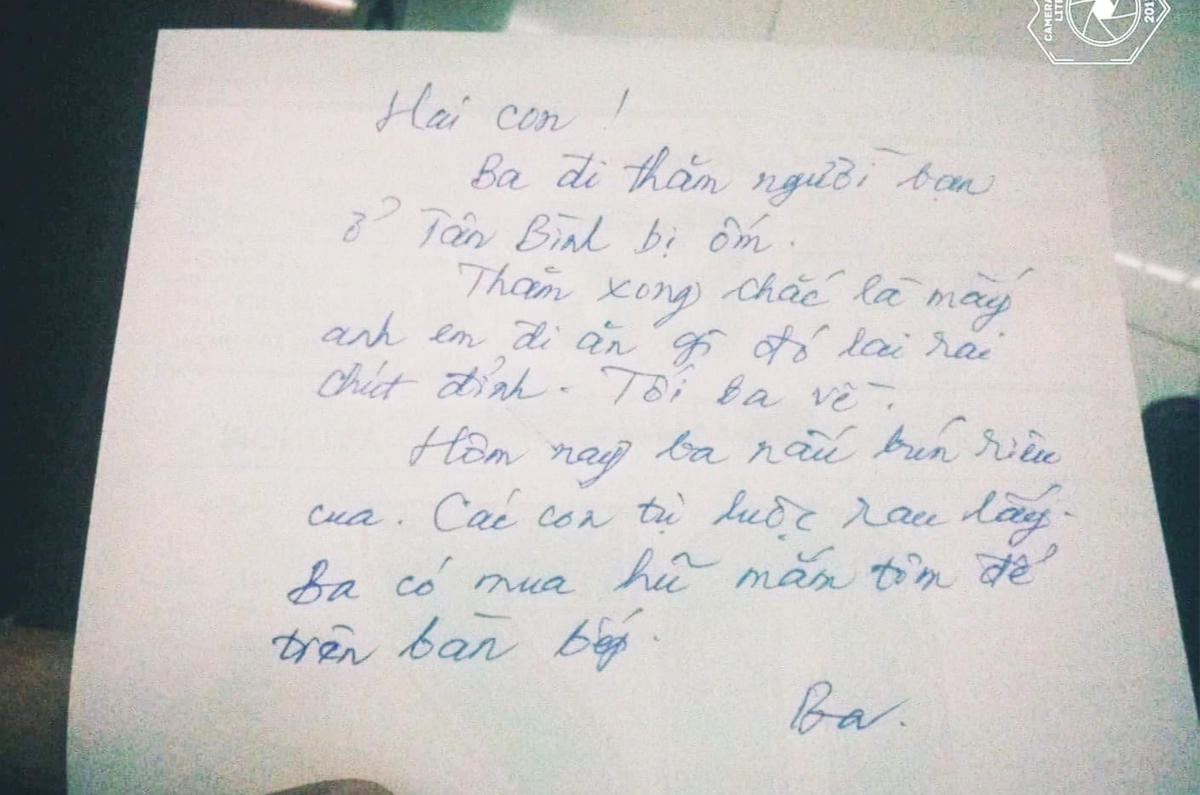 Hai con !
Ba đi thăm người bạn
ở Tân Bình bị ốm.
Thăm xong chắc là mấy
anh em đi ăn gì đó lai rai
chút đỉnh. Tối ba về.
Hôm nay ba nấu bún riêu
cua. Các con tự luộc rau lấy.
Ba có mua hũ mắm tôm để
trên bàn bếp.
Ba.
CAMERA
LITE
201